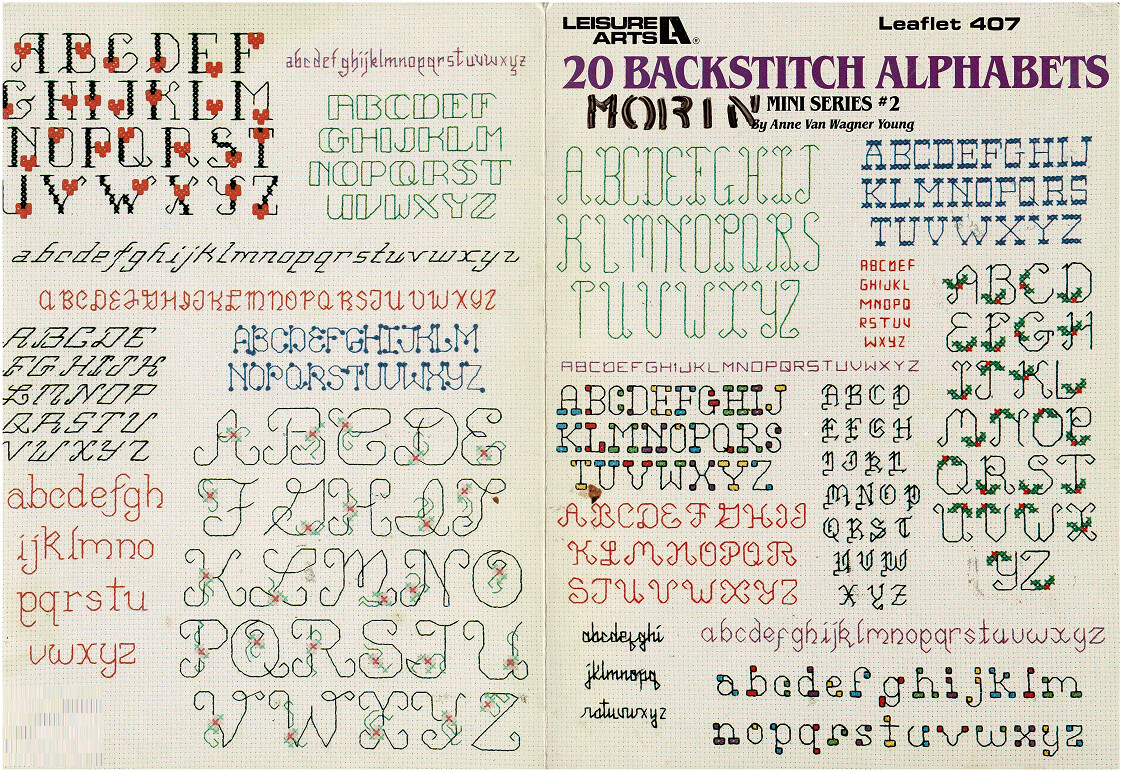 ABCDEF
GHIJKLM
NOPQRST
UVWXYZ
abcdefghijklmnopqrstuvwxyz
ABCDEF
GHIJKLM
NOPQRST
UVWXYZ
abcdefghijklmnopqrstuvwxyz
ABCDEFGHIJKLMNOPQRSTUVWXYZ
ABCDE
FGHIJK
LMNOP
QRSTU
VWXYZ
ABCDEFGHIJKLM
NOPQRSTUVWXYZ
ABCDE
FGHIJ
KLMNO
PQRSTU
VWXYZ
abcdefgh
ijklmno
pqrstu
vwxyz
LEISURE
ARTS LA®
Leaflet 407
20 BACKSTITCH ALPHABETS
MORIN
MINI SERIES #2
By Anne Van Wagner Young
ABCDEFGHIJ
KLMNOPQRS
TUVWXYZ
ABCDEFGHIJ
KLMNOPQRS
TUVWXYZ
ABCDEF
GHIJKL
MNOPQ
RSTUV
WXYZ
ABCD
EFGH
IJKL
MNOP
QRST
UVWX
YZ
ABCDEFGHIJKLMNOPQRSTUVWXYZ
ABCDEFGHIJ
KLMNOPQRS
TUVWXYZ
ABCD
EFGH
IJKL
MNOP
QRST
UVW
XYZ
ABCDEFGHIJ
KLMNOPQR
STUVWXYZ
abcdefghi
jklmnopq
rstuvwxyz
abcdefghijklmnopqrstuvwxyz
abcdefghijklm
nopqrstuvwxyz